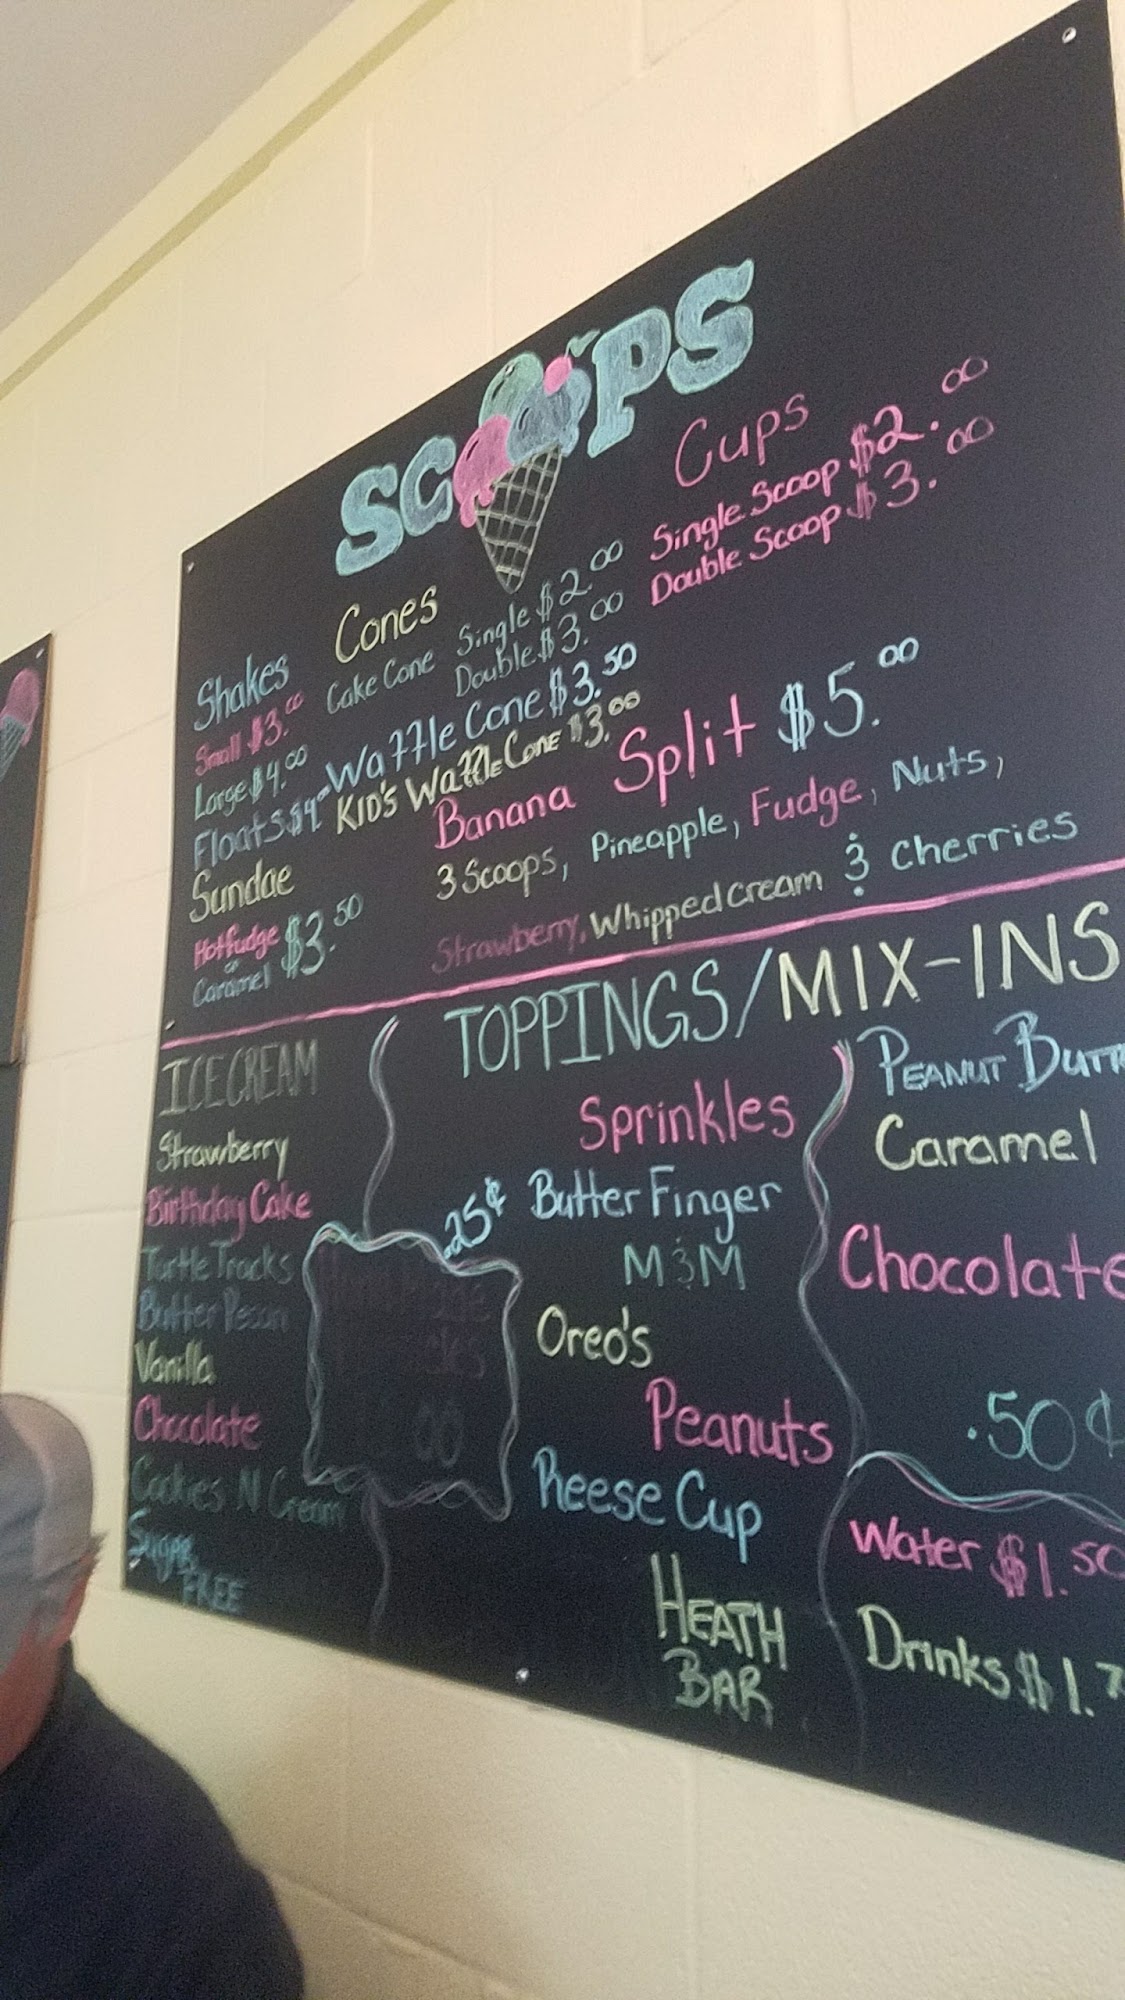 SCOOPS
Cups
Single Scoop $2.00
Double Scoop $3.00
Cones
Cake Cone Single $2.00
Double $3.00
Waffle Cone $3.50
KID'S Waffle Cone $3.00
Shakes
Small $3.00
Large $4.00
Floats $4.00
Sundae
Hotfudge or Caramel $3.50
Banana Split $5.00
3 Scoops, Pineapple, Fudge, Nuts,
Strawberry, Whipped cream & Cherries
ICE CREAM
Strawberry
Birthday Cake
Turtle Tracks
Butter Pecan
Vanilla
Chocolate
Cookies N Cream
Sugar
FREE
TOPPINGS/MIX-INS
Sprinkles
.25¢ Butter Finger
M&M
Oreo's
Peanuts
Reese Cup
HEATH
BAR
PEANUT BUTT
Caramel
Chocolate
.50¢
Water $1.50
Drinks $1.7